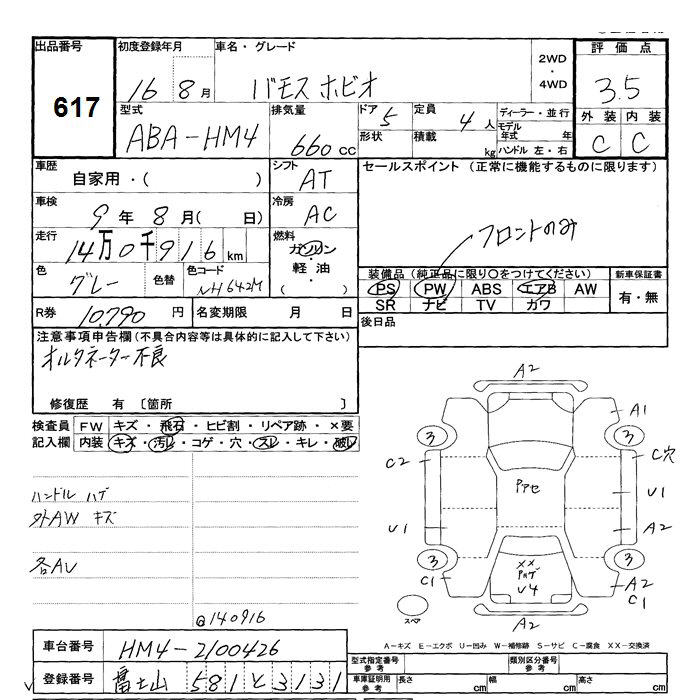 出品番号 初度登録年月 車名・グレード 2WD・4WD 評価点
617 16 8月 バモス ホビオ 3.5
型式 排気量 ドア 5 定員 4人 ディーラー・並行 外装 内装
ABA-HM4 660cc 形状 積載 kg モデル年式 年 ハンドル 左・右 C C
車歴 自家用・( ) シフト AT セールスポイント (正常に機能するものに限ります)
車検 9年 8月( 日) 冷房 AC
走行 14万0千916km 燃料 ガソリン・軽油・( ) フロントのみ
色 グレー 色替 色コード NH642M
装備品 (純正品に限り○をつけてください) 新車保証書
PS PW ABS エアB AW 有・無
SR ナビ TV カワ
R券 10,790円 名変期限 月 日 後日品
注意事項申告欄(不具合内容等は具体的に記入して下さい)
オルタネーター不良
修復歴 有 〔箇所 〕
検査員 FW キズ・飛石・ヒビ割・リペア跡・×要
記入欄 内装 キズ・汚レ・コゲ・穴・スレ・キレ・破レ
ハンドル ハゲ
外AW キズ
各AU
@140916
A2
A1
3 3
C2 C穴
Pアセ U1
U1 A2
3 3
C1 ×× Pハゲ U4 A2 C1
スペア A2
A-キズ E-エクボ U-凹み W-補修跡 S-サビ C-腐食 XX-交換済
車台番号 HM4-2100426 型式指定番号 参考 類別区分番号 参考
登録番号 富士山 581 と 3131 車庫証明用 参考 長さ cm 幅 cm 高さ cm